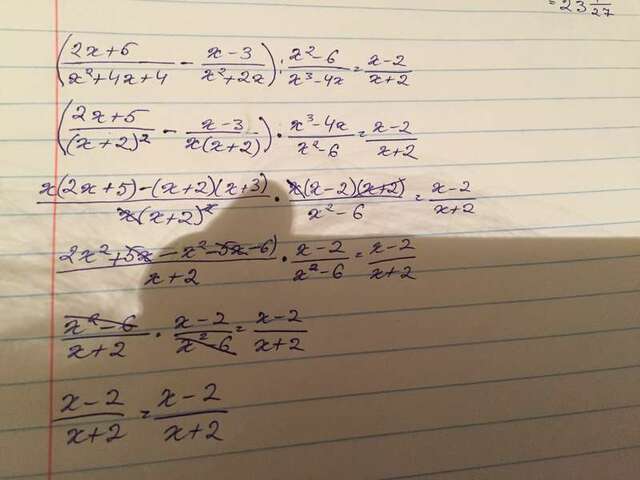 = 23 1/27
((2x+5)/(x²+4x+4) - (x-3)/(x²+2x)) : (x²-6)/(x³-4x) = (x-2)/(x+2)
((2x+5)/(x+2)² - (x-3)/(x(x+2))) · (x³-4x)/(x²-6) = (x-2)/(x+2)
(x(2x+5)-(x+2)(x+3))/(x(x+2)²) · (x(x-2)(x+2))/(x²-6) = (x-2)/(x+2)
(2x²+5x-x²-5x-6)/(x+2) · (x-2)/(x²-6) = (x-2)/(x+2)
(x²-6)/(x+2) · (x-2)/(x²-6) = (x-2)/(x+2)
(x-2)/(x+2) = (x-2)/(x+2)